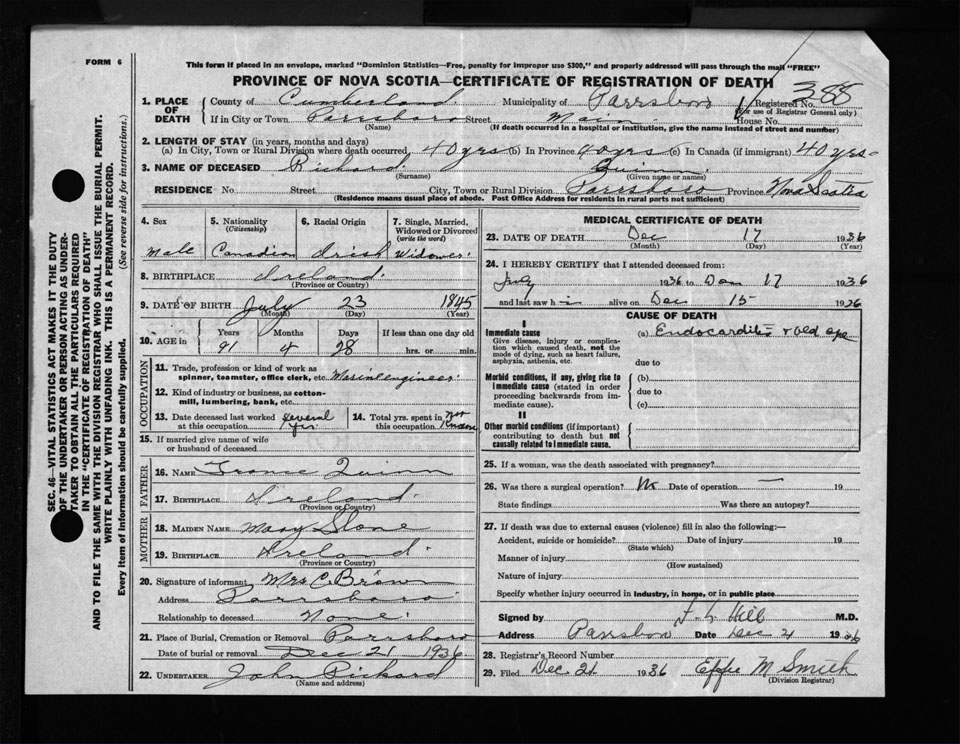 FORM 6
This form if placed in an envelope, marked "Dominion Statistics—Free, penalty for improper use $300," and properly addressed will pass through the mail "FREE"
PROVINCE OF NOVA SCOTIA—CERTIFICATE OF REGISTRATION OF DEATH
388
1. PLACE OF DEATH
County of Cumberland Municipality of Parrsboro Registered No.
(For use of Registrar General only)
If in City or Town Parrsboro Street Main House No.
(Name) (If death occurred in a hospital or institution, give the name instead of street and number)
2. LENGTH OF STAY (in years, months and days)
(a) In City, Town or Rural Division where death occurred, 40 yrs (b) In Province 40 yrs (c) In Canada (if immigrant) 40 yrs
3. NAME OF DECEASED Richard Quinn
(Surname) (Given name or names)
RESIDENCE No Street City, Town or Rural Division Parrsboro Province Nova Scotia
(Residence means usual place of abode. Post Office Address for residents in rural parts not sufficient)
4. Sex 5. Nationality (Citizenship) 6. Racial Origin 7. Single, Married, Widowed or Divorced (write the word)
Male Canadian Irish Widower
8. BIRTHPLACE Ireland
(Province or Country)
9. DATE OF BIRTH July 23 1845
(Month) (Day) (Year)
10. AGE in Years Months Days If less than one day old
91 4 28 hrs. or min.
OCCUPATION
11. Trade, profession or kind of work as
spinner, teamster, office clerk, etc. Marine engineer
12. Kind of industry or business, as cotton-
mill, lumbering, bank, etc.
13. Date deceased last worked at this occupation Several yrs 14. Total yrs. spent in this occupation Not Known
15. If married give name of wife
or husband of deceased
FATHER
16. NAME Quinn
17. BIRTHPLACE Ireland
(Province or Country)
MOTHER
18. MAIDEN NAME Mary Slone
19. BIRTHPLACE Ireland
(Province or Country)
20. Signature of informant Mrs C. Brown
Address Parrsboro
Relationship to deceased None
21. Place of Burial, Cremation or Removal Parrsboro
Date of burial or removal Dec 21 1936
22. UNDERTAKER John Rickard
(Name and address)
MEDICAL CERTIFICATE OF DEATH
23. DATE OF DEATH Dec 17 1936
(Month) (Day) (Year)
24. I HEREBY CERTIFY that I attended deceased from:
July 1936 to Dec 17 1936
and last saw him alive on Dec 15 1936
CAUSE OF DEATH
I
Immediate cause (a) Endocarditis & old age
Give disease, injury or complica-
tion which caused death, not the
mode of dying, such as heart failure,
asphyxia, asthenia, etc. due to
Morbid conditions, if any, giving rise to (b)
immediate cause (stated in order due to
proceeding backwards from im-
mediate cause). (c)
II
Other morbid conditions (if important)
contributing to death but not
causally related to immediate cause.
25. If a woman, was the death associated with pregnancy?
26. Was there a surgical operation? No Date of operation — 19
State findings Was there an autopsy?
27. If death was due to external causes (violence) fill in also the following:—
Accident, suicide or homicide? Date of injury 19
(State which)
Manner of injury
(How sustained)
Nature of injury
Specify whether injury occurred in industry, in home, or in public place
Signed by Hill M.D.
Address Parrsboro Date Dec 21 1936
28. Registrar's Record Number
29. Filed Dec. 21 1936 Effie M Smith
(Division Registrar)
SEC. 46—VITAL STATISTICS ACT MAKES IT THE DUTY
OF THE UNDERTAKER OR PERSON ACTING AS UNDER-
TAKER TO OBTAIN ALL THE PARTICULARS REQUIRED
IN THE "CERTIFICATE OF REGISTRATION OF DEATH"
AND TO FILE THE SAME WITH THE DIVISION REGISTRAR WHO SHALL ISSUE THE BURIAL PERMIT.
WRITE PLAINLY WITH UNFADING INK. THIS IS A PERMANENT RECORD.
Every item of information should be carefully supplied. (See reverse side for instructions.)